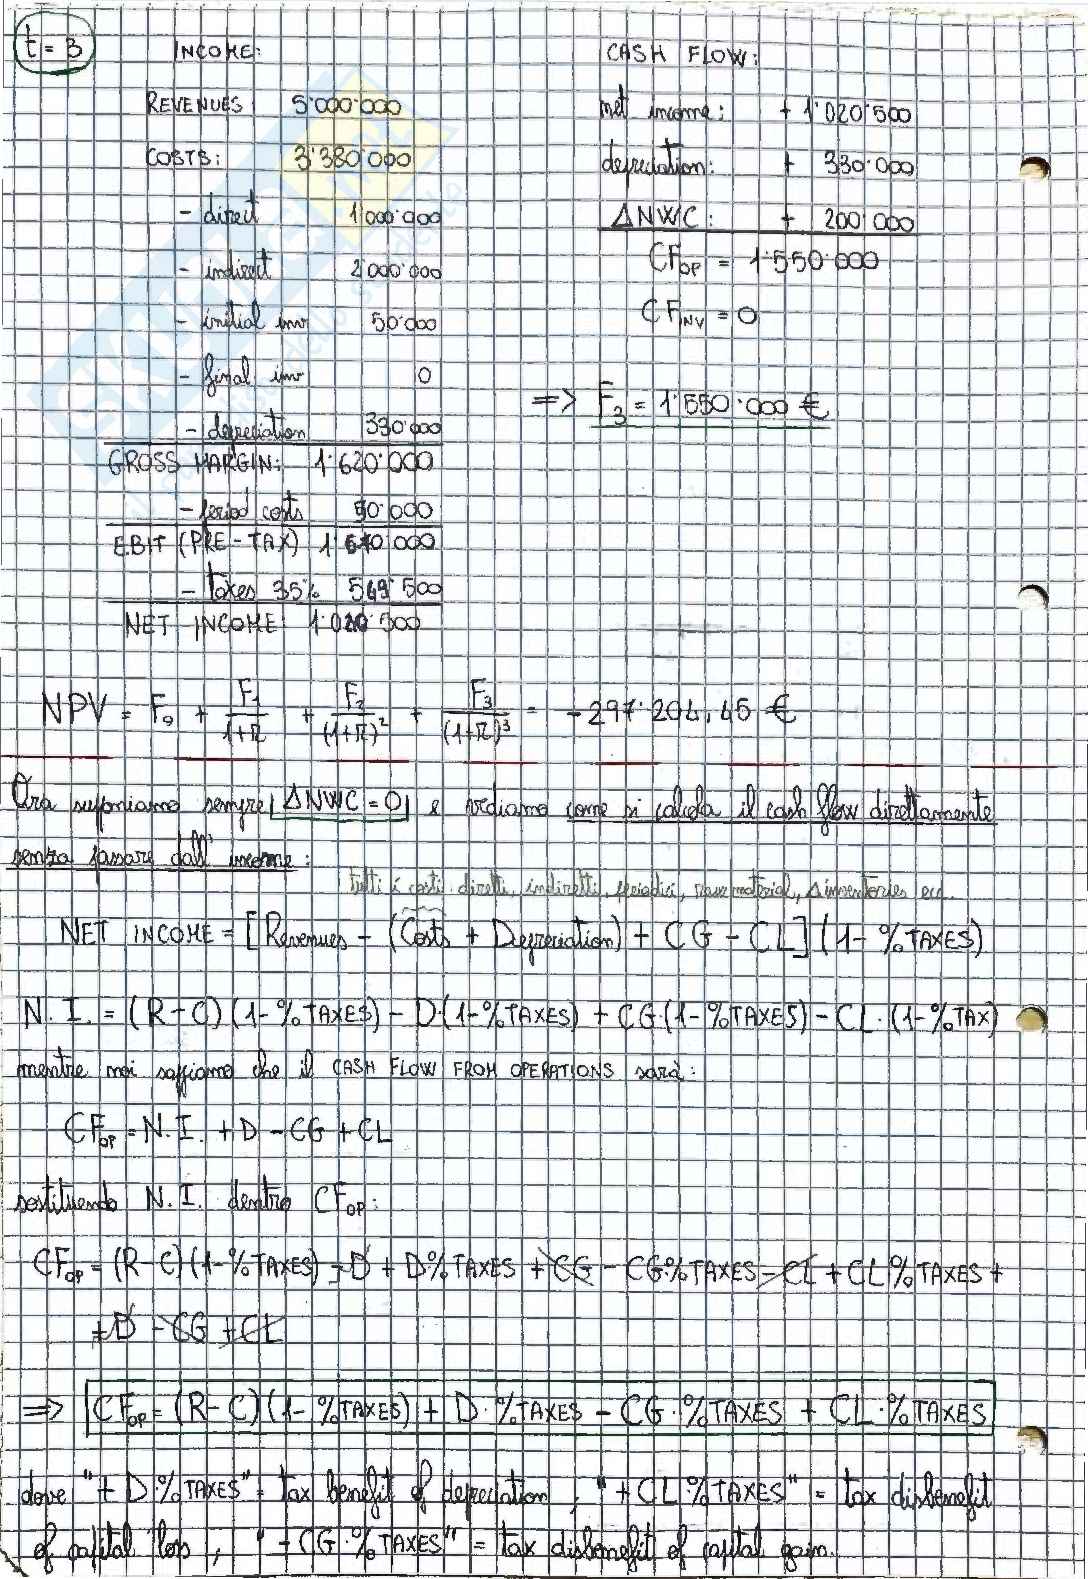 t = 3
INCOME:
REVENUES 5'000'000
COSTS: 3'380'000
- direct 1'000'000
- indirect 2'000'000
- initial inv 50'000
- final inv 0
- depreciation 330'000
GROSS MARGIN: 1'620'000
- period costs 50'000
EBIT (PRE-TAX)
- taxes 35%
NET INCOME:
CASH FLOW:
net income: + 1'020'500
depreciation: + 330'000
ΔNWC: + 200'000
CFop = 1'550'000
CFINV = 0
=> F3 = 1'550'000 €
NPV = F0 + F1/(1+r) + F2/(1+r)² + F3/(1+r)³ = -297'204,45 €
Ora supponiamo sempre ΔNWC = 0 e vediamo come si calcola il cash flow direttamente
senza passare dall'income:
tutti i costi diretti, indiretti, periodici, raw material, Δinventories ecc.
NET INCOME = [Revenues - (Costs + Depreciation) + CG - CL] (1 - %TAXES)
N.I. = (R-C)(1-%TAXES) - D·(1-%TAXES) + CG·(1-%TAXES) - CL·(1-%TAX)
mentre noi sappiamo che il CASH FLOW FROM OPERATIONS sarà:
CFop = N.I. + D - CG + CL
sostituendo N.I. dentro CFop:
CFop = (R-C)(1-%TAXES) - D + D·%TAXES + CG - CG·%TAXES - CL + CL%TAXES +
+ D - CG + CL
=> CFop = (R-C)(1-%TAXES) + D·%TAXES - CG·%TAXES + CL·%TAXES
dove "+ D·%TAXES" = tax benefit of depreciation, "+ CL·%TAXES" = tax disbenefit
of capital loss, "- CG·%TAXES" = tax disbenefit of capital gain.